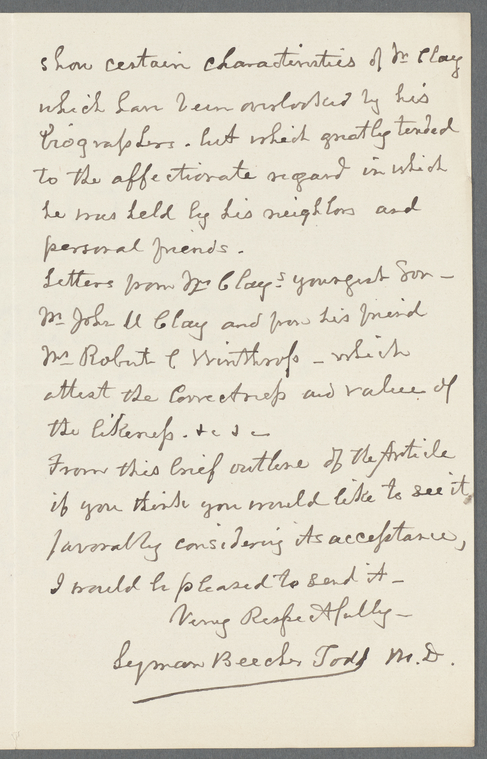 show certain characteristics of Mr Clay
which have been overlooked by his
biographers. but which greatly tended
to the affectionate regard in which
he was held by his neighbors and
personal friends.
Letters from Mr Clay's youngest Son —
Mr John M Clay and from his friend
Mr Robert C Winthrop — which
attest the correctness and value of
the likeness. &c &c —
From this brief outline of the Article
if you think you would like to see it
favorably considering its acceptance,
I would be pleased to send it —
Very Respectfully —
Lyman Beecher Todd M.D.